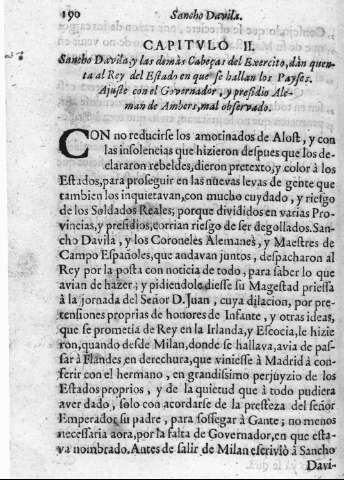 190 Sancho Davila.
CAPITVLO II.
Sancho Davila, y las demàs Cabeças del Exercito, dàn quen-
ta al Rey del Estado en que se hallan los Payses.
Ajuste con el Governador, y presidio Ale-
man de Ambers, mal observado.
CON no reducirse los amotinados de Alost, y con
las insolencias que hizieron despues que los de-
clararon rebeldes, dieron pretexto, y color à los
Estados, para proseguir en las nuevas levas de gente que
tambien los inquietavan, con mucho cuydado, y riesgo
de los Soldados Reales; porque divididos en varias Pro-
vincias, y presidios, corrian riesgo de ser degollados. San-
cho Davila, y los Coroneles Alemanes, y Maestres de
Campo Españoles, que andavan juntos, despacharon al
Rey por la posta con noticia de todo, para saber lo que
avian de hazer; y pidiendole diesse su Magestad priessa
à la jornada del Señor D. Juan, cuya dilacion, por pre-
tensiones proprias de honores de Infante, y otras ideas,
que se prometia de Rey en la Irlanda, y Escocia, le hizie
ron, quando desde Milan, donde se hallava, avia de pas-
sar à Flandes, en derechura, que viniesse à Madrid à con-
ferir con el hermano, en grandissimo perjuyzio de los
Estados proprios, y de la quietud que à todo pudiera
aver dado, solo con acordarse de la presteza del señor
Emperador su padre, para sossegar à Gante; no menos
necessaria aora, por la falta de Governador, en que esta-
va nombrado. Antes de salir de Milan escriviò à Sancho
Davi-